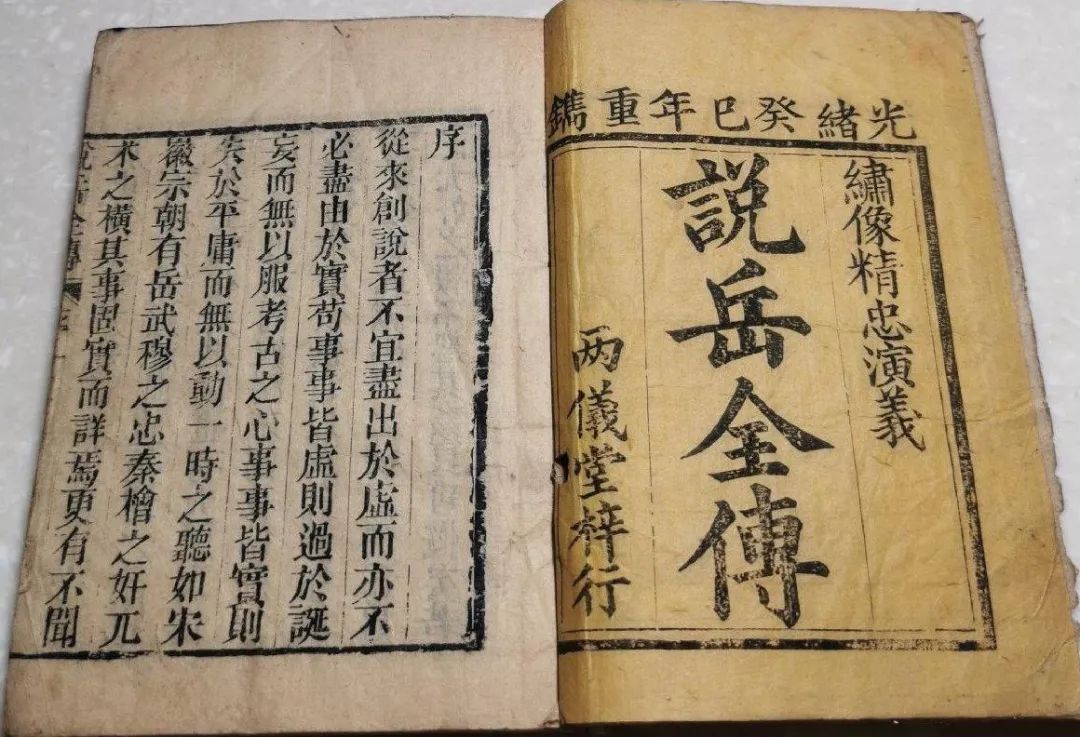 光緒癸巳年重鐫
繡像精忠演義
説岳全傳
两儀堂梓行
序
從來創說者不宜盡出於虛而亦不
必盡由於實苟事事皆虛則過於誕
妄而無以服考古之心事事皆實則
失於平庸而無以動一時之聽如宋
徽宗朝有岳武穆之忠秦檜之奸兀
术之橫其事固實而詳焉更有不聞
說岳全傳 序